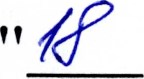 " 18